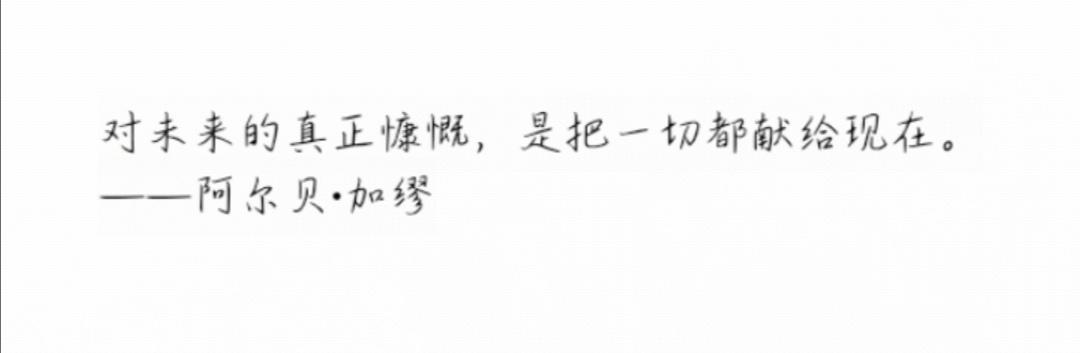 对未来的真正慷慨，是把一切都献给现在。
——阿尔贝·加缪